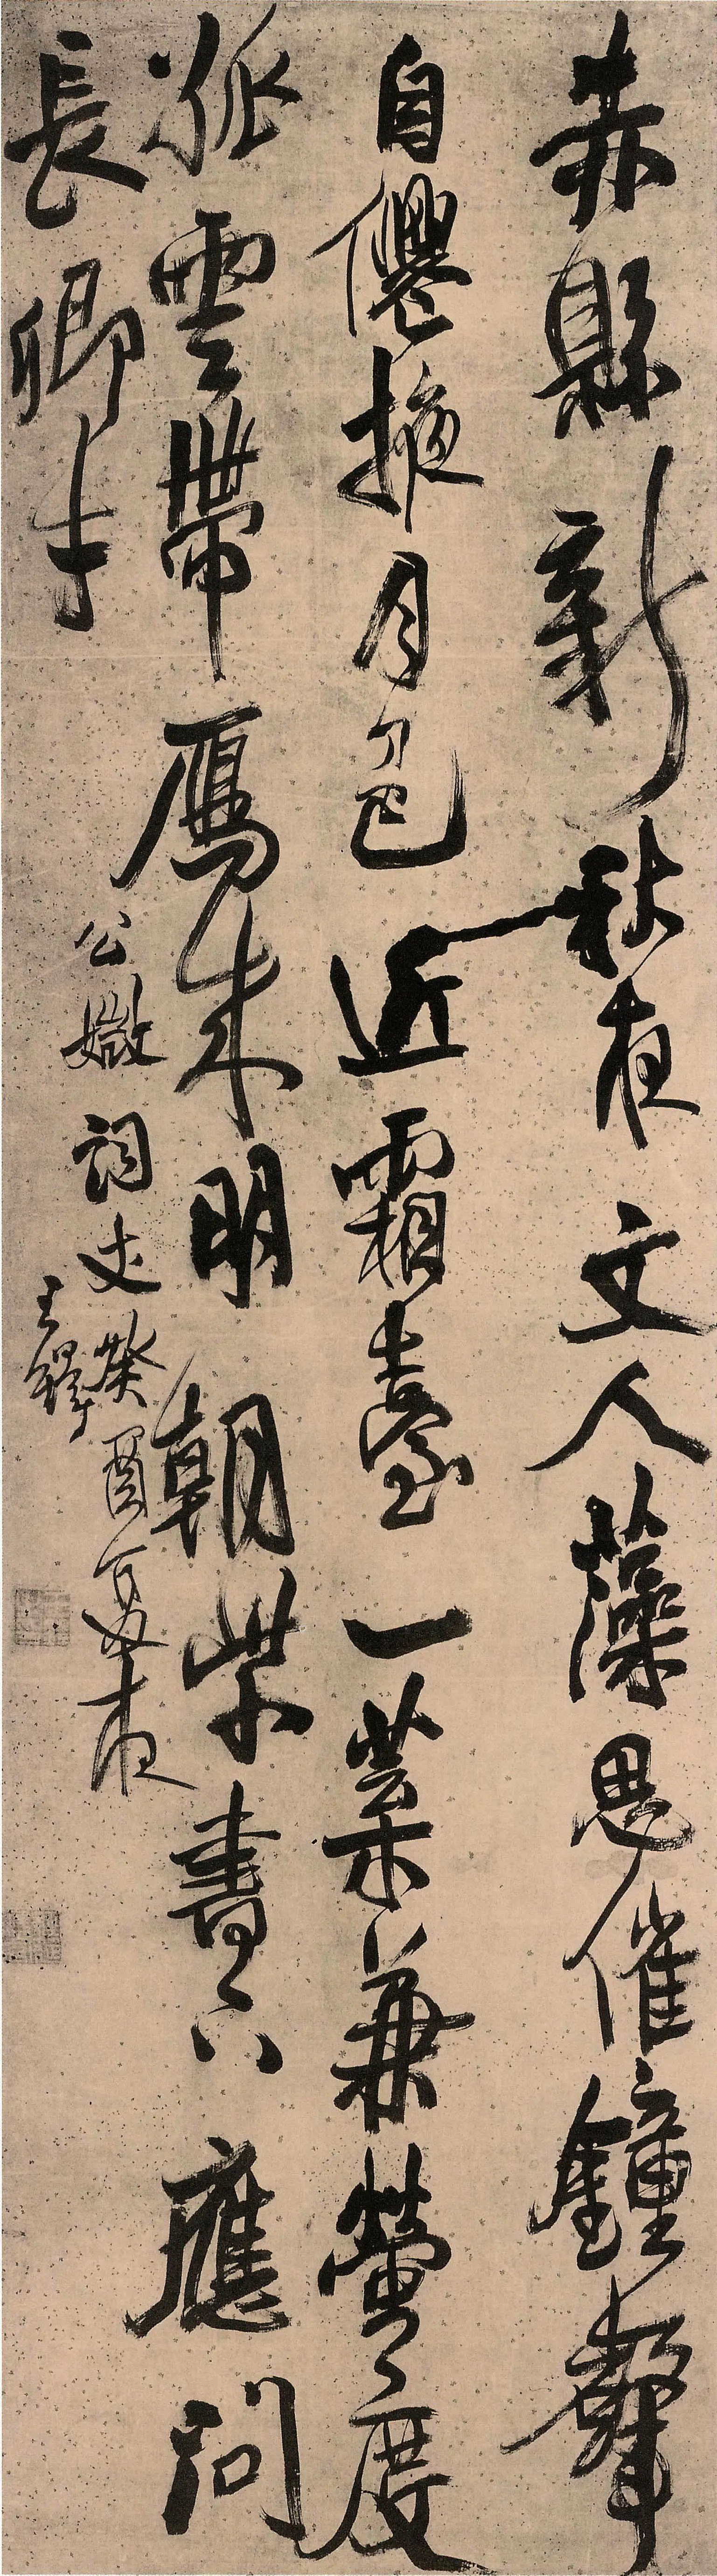 赤縣新秋夜文人藻思催鐘聲
自僊掖月色近霜臺一葉兼螢度
孤雲帶鴈来明朝紫書下應問
長卿才
公媺詞丈癸酉夏夜
王鐸